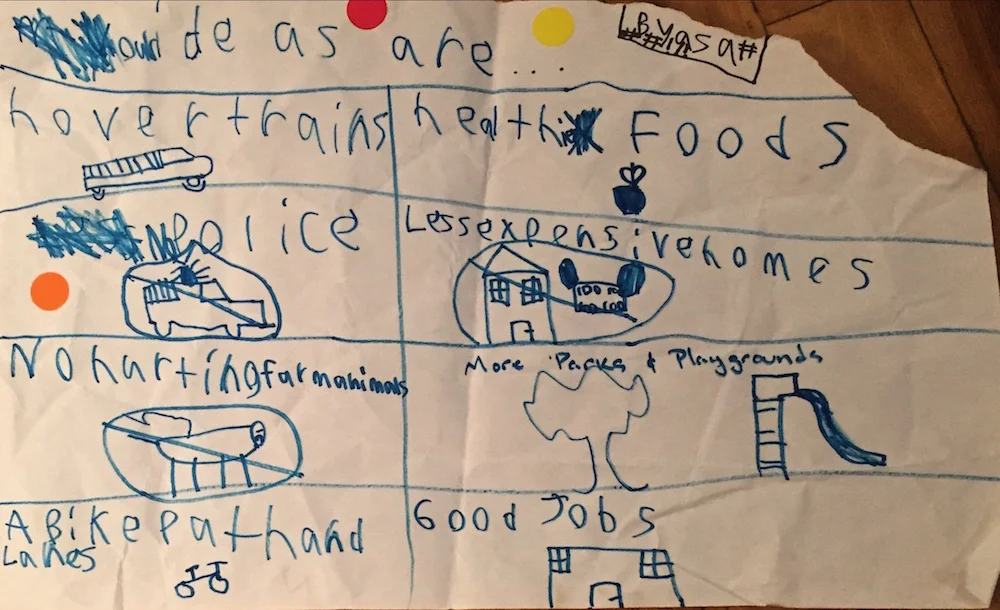 ide as are....
hover trains
healthi Foods
No police
Less expensive homes
No hurting farm animals
More Parks & Playgrounds
A Bike path and
Lanes
Good Jobs